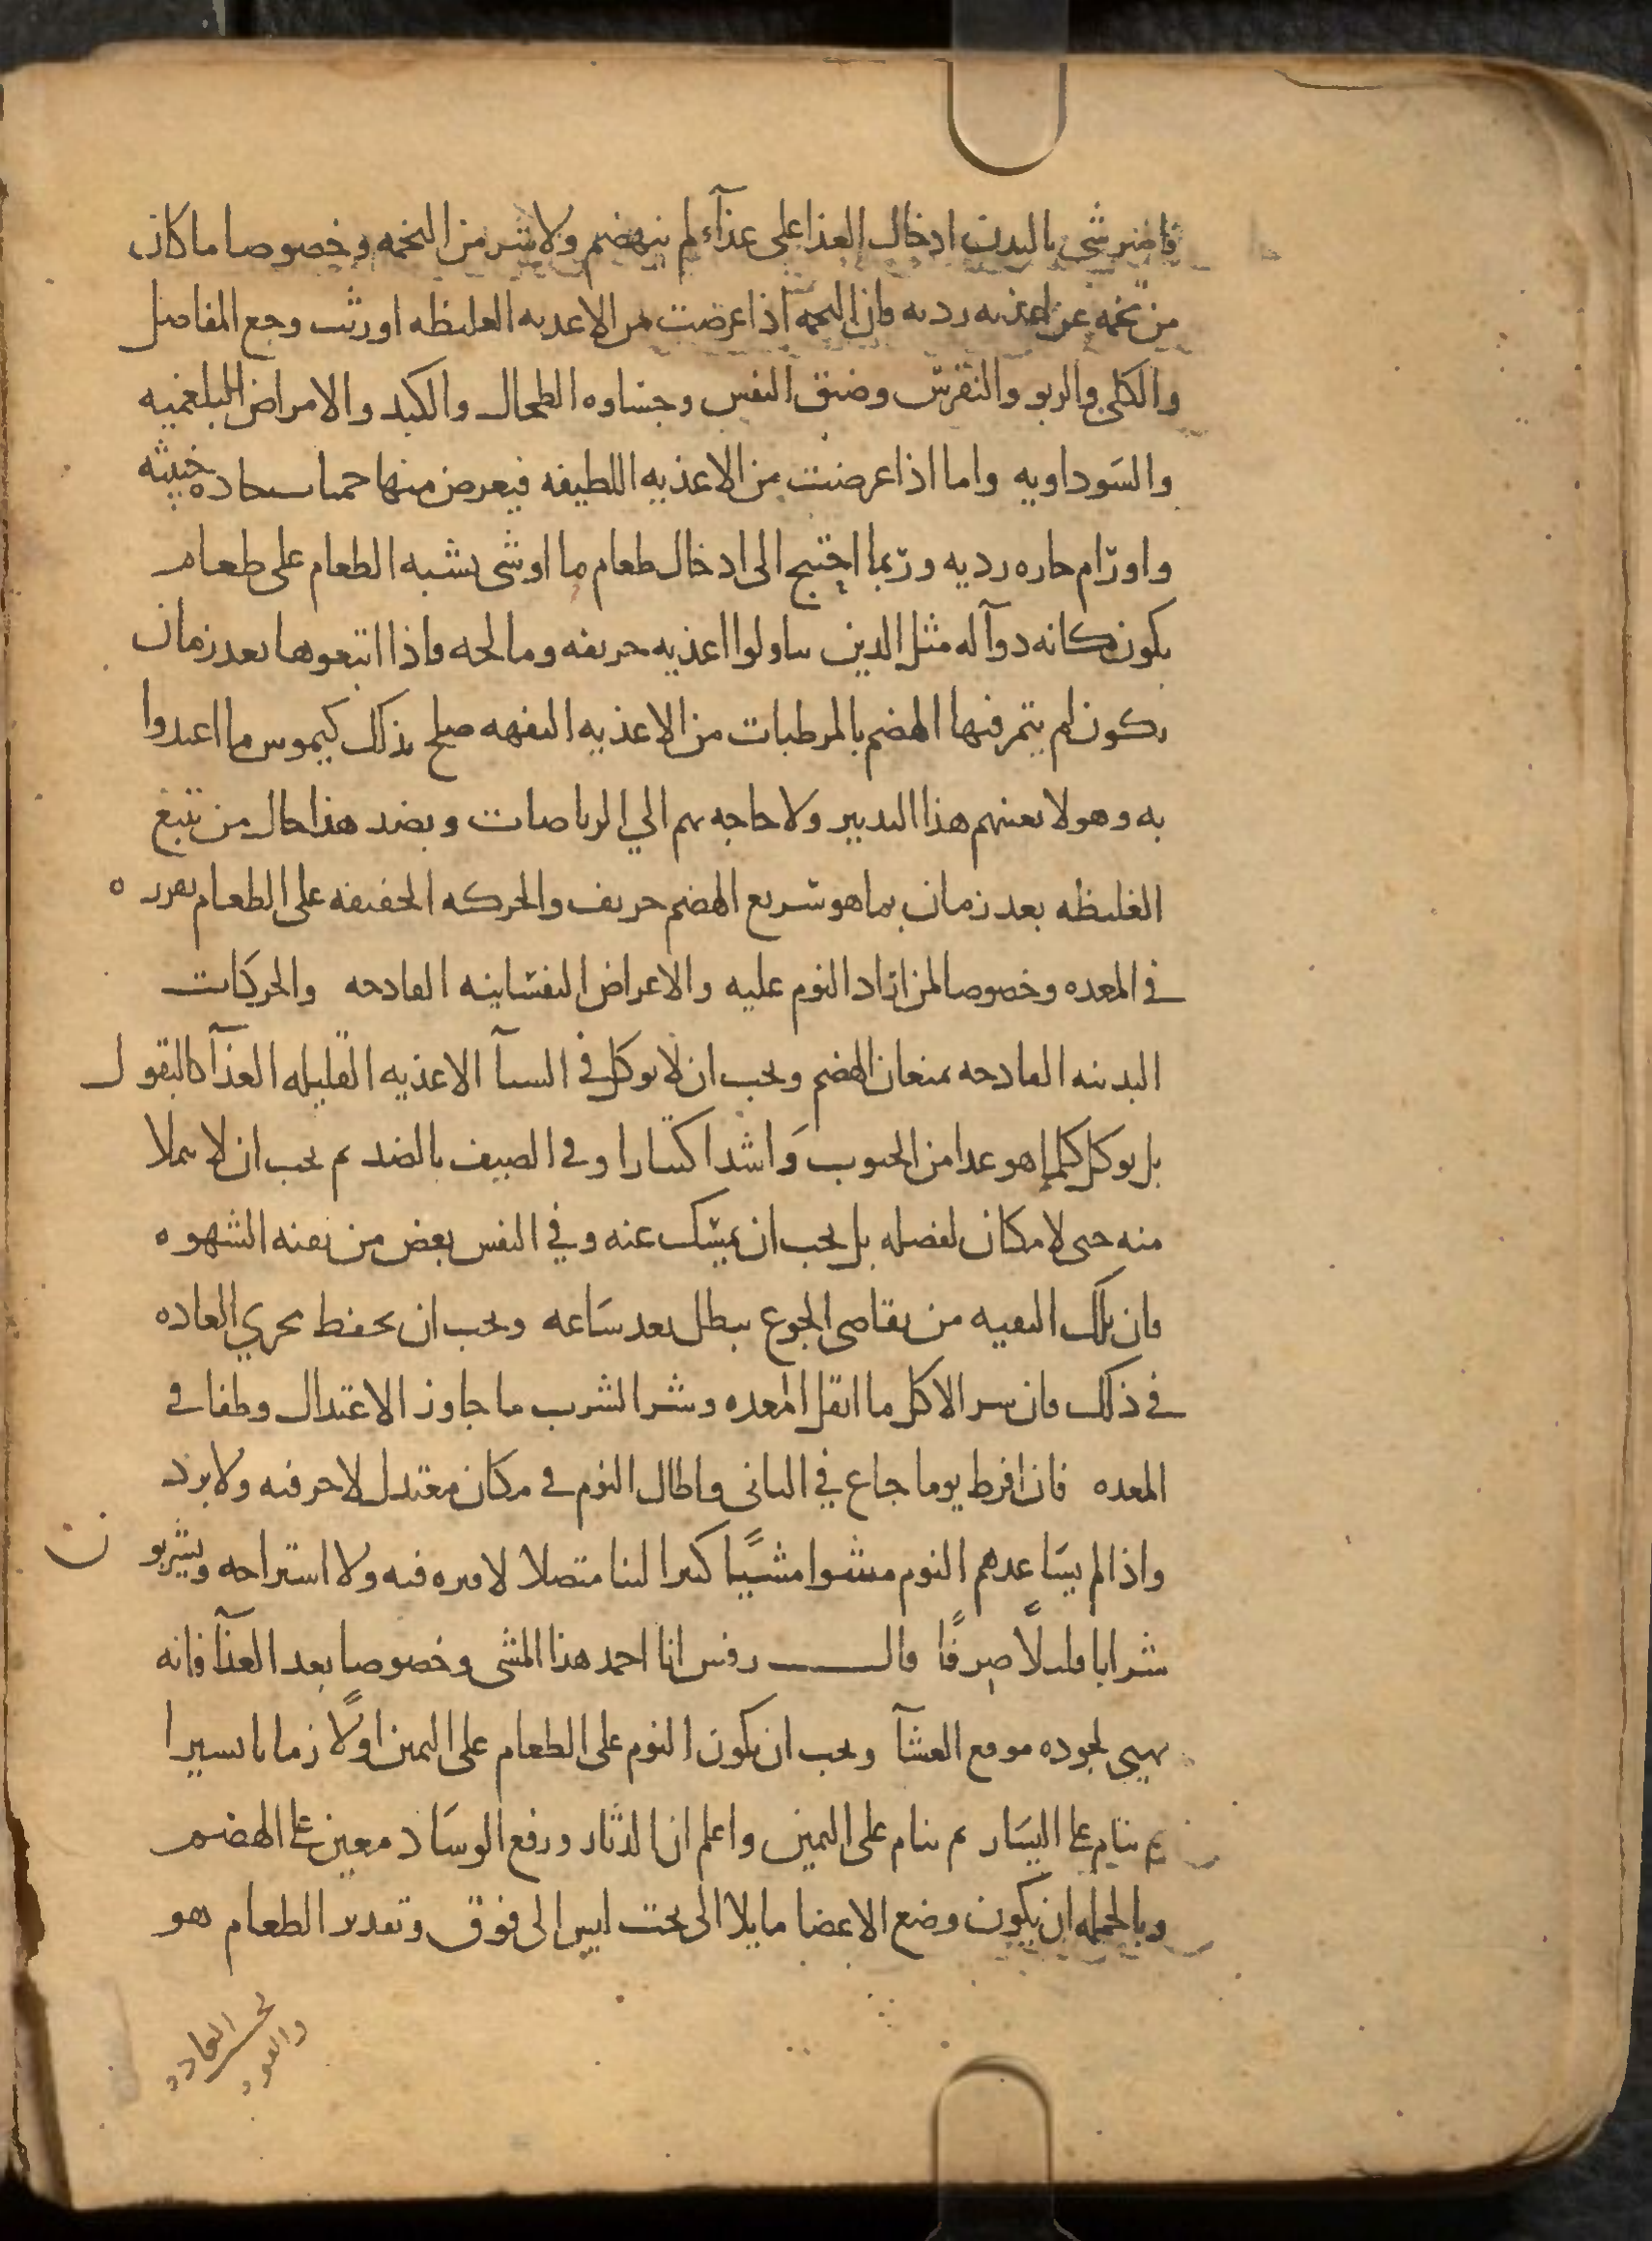 فاضر شى بالبدن ادخال الغذا على غذآء لم ينهضم ولا شر من التخمه وخصوصا ما كان
من تخمه عن اغذيه رديه فان التخمه اذا عرضت من الاغذيه الغليظه اورثت وجع المفاصل
والكلى والربو والنقرس وضيق النفس وجساوه الطحال والكبد والامراض البلغميه
والسوداويه واما اذا عرضت من الاغذيه اللطيفه فيعرض منها حميات حاده خبيثه
واورام حاره رديه وربما احتيج الى ادخال طعام ما او شى يشبه الطعام على طعام
يكون كانه دوآ له مثل الذين يتناولوا اغذيه حريفه ومالحه فاذا اتبعوها بعد زمان
يكون لم يتم فيها الهضم بالمرطبات من الاغذيه التفهه صلح بذلك كيموس ما اغتدوا
به وهولا يعنيهم هذا التدبير ولا حاجه بهم الي الرياضات وبضد هذا حال من تتبع
الغليظه بعد زمان بما هو سريع الهضم حريف والحركه الخفيفه على الطعام تقرره
في المعده وخصوصا لمن اراد النوم عليه والاعراض النفسانيه الفادحه والحركات
البدنيه الفادحه يمنعان الهضم ويجب ان لا يوكل في الشتآ الاغذيه القليله الغذآ كالبقول
بل يوكل كلما هو غدا من الحبوب واشد اكتنازا وفي الصيف بالضد ثم يجب ان لا يملا
منه حتى لا مكان لفضله بل يجب ان يمسك عنه وفي النفس بعض من بقيه الشهوه
فان تلك البقيه من تقاضى الجوع يبطل بعد ساعه ويجب ان يحفظ مجري العاده
في ذلك فان شر الاكل ما اثقل المعده وشر الشرب ما جاوز الاعتدال وطفا في
المعده فان افرط يوما جاع في الثانى واطال النوم في مكان معتدل لا حر فيه ولا برد
واذا لم يساعدهم النوم مشوا مشيًا كثيرا لينا متصلا لا فتره فيه ولا استراحه ويشربون
شرابا قليلًا صرفًا قال روفس انا احمد هذا المشى وخصوصا بعد الغذآ فانه
يهيى لجوده موقع العشآ ويجب ان يكون النوم على الطعام على اليمين اولًا زمانا يسيرا
ثم ينام على اليسار ثم ينام على اليمين واعلم ان الدثار ورفع الوساد معين على الهضم
وبالجمله ان يكون وضع الاعضا مايلا الى تحت ليس الى فوق وتقدير الطعام هو
بحسب العاده
والقوه